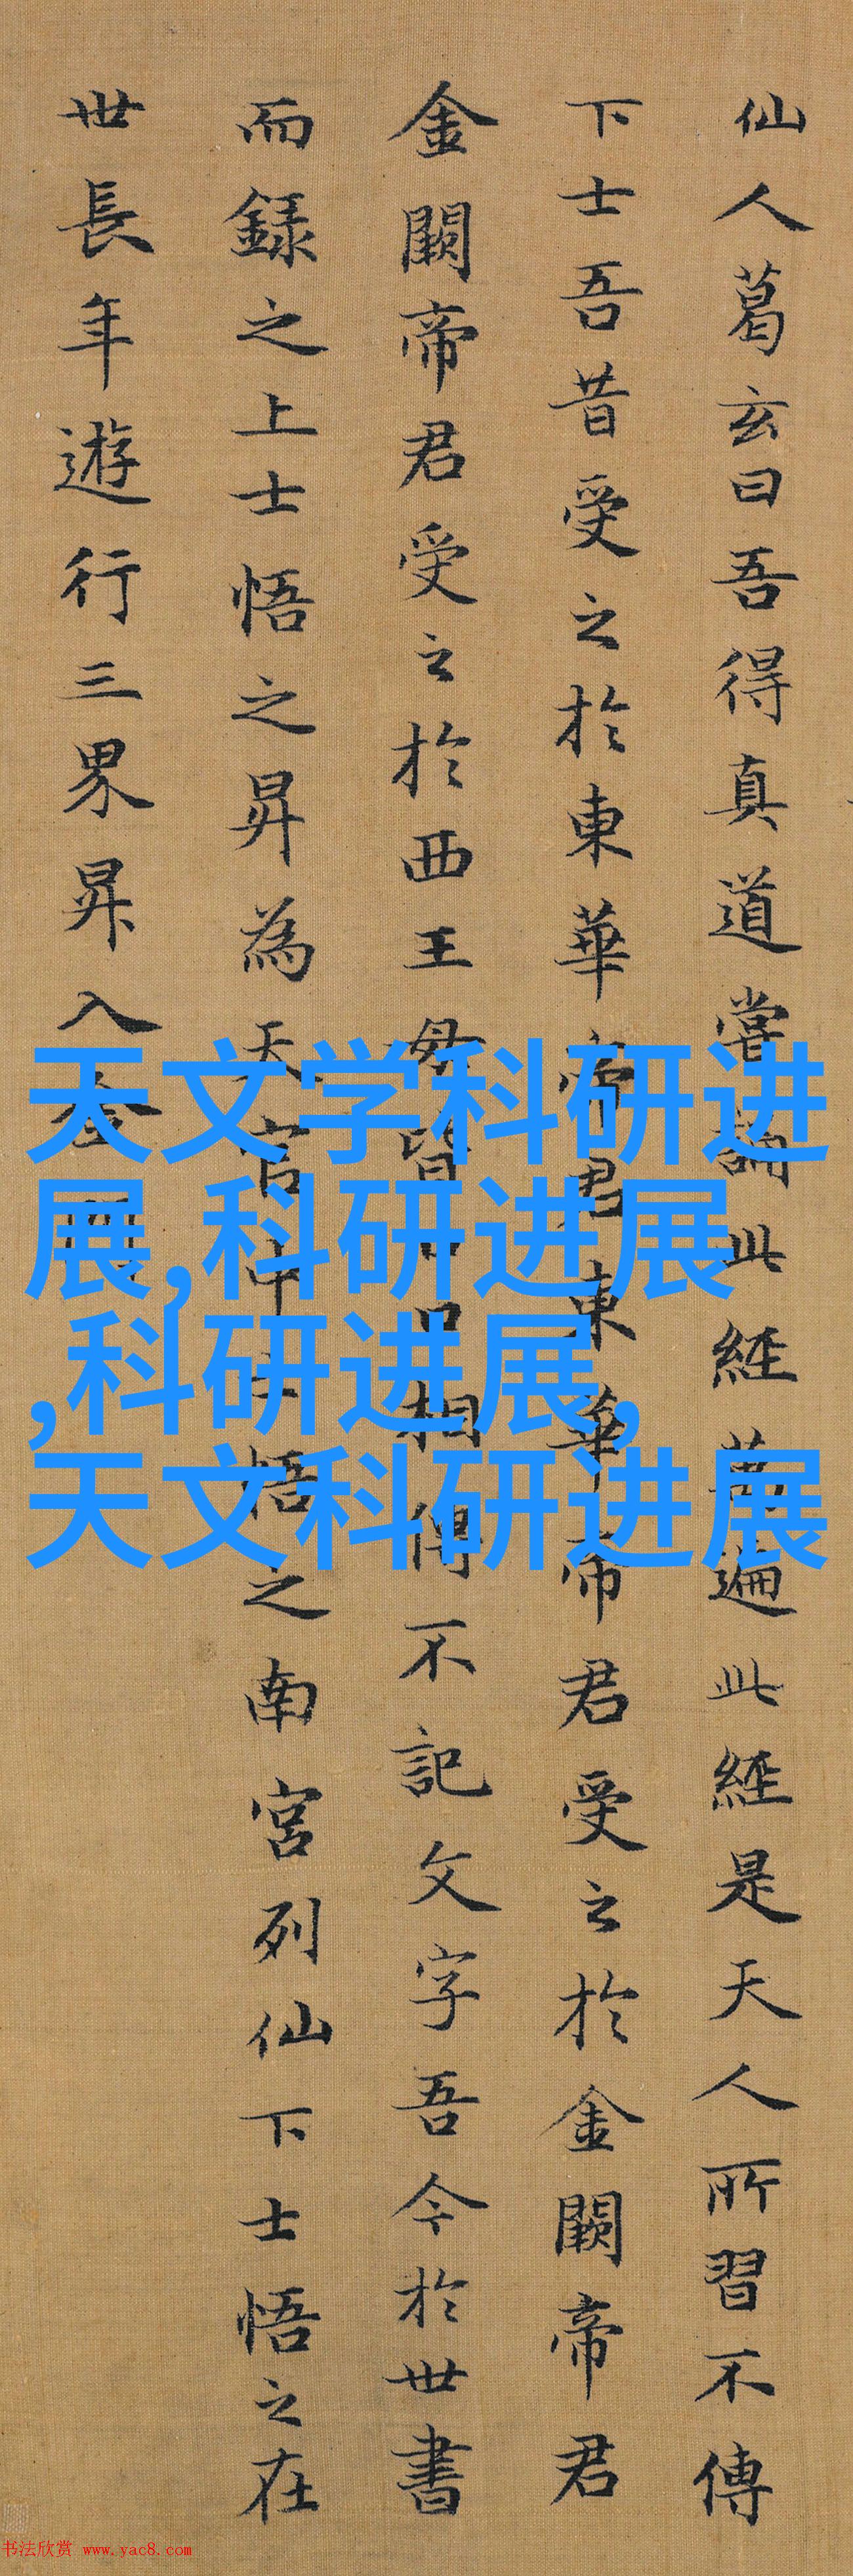 仙人葛玄曰吾得真道嘗誦此經萬遍此經是天人所習不傳
下士吾昔受之於東華帝君東華帝君受之於金闕帝君
金闕帝君受之於西王母皆口口相傳不記文字吾今於世書
而録之上士悟之昇為天官中士悟之南宮列仙下士悟之在
世長年遊行三界昇入金門
天文学科研进
展,科研进展
,科研进展,
天文科研进展
书法欣赏 www.yac8.com